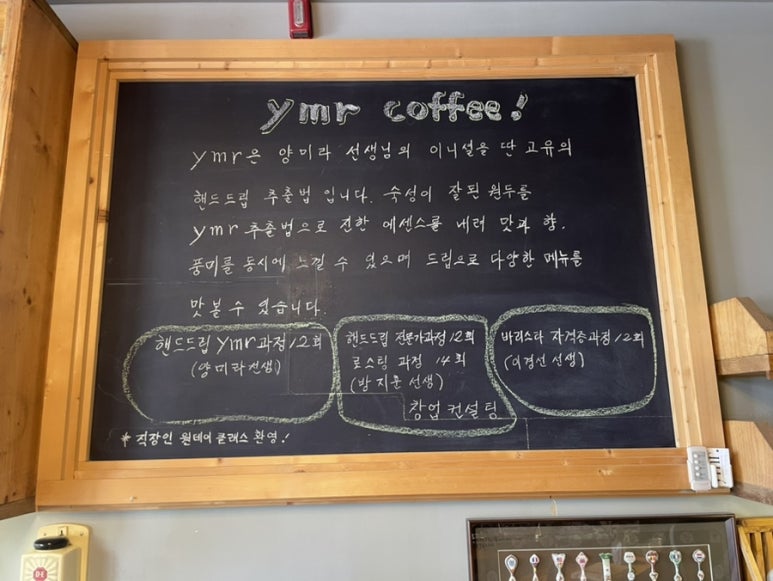 ymr coffee!
ymr은 양미라 선생님의 이니셜을 딴 고유의
핸드드립 추출법 입니다. 숙성이 잘된 원두를
ymr 추출법으로 진한 에센스를 내려 맛과 향.
풍미를 동시에 느낄 수 있으며 드립으로 다양한 메뉴를
맛볼 수 있습니다.
핸드드립 ymr 과정 12회
(양미라선생)
핸드드립 전문가과정 12회
로스팅 과정 14회
(방지훈 선생)
창업 컨설팅
바리스타 자격증과정 12회
(이경선 선생)
* 직장인 원데이 클래스 환영!